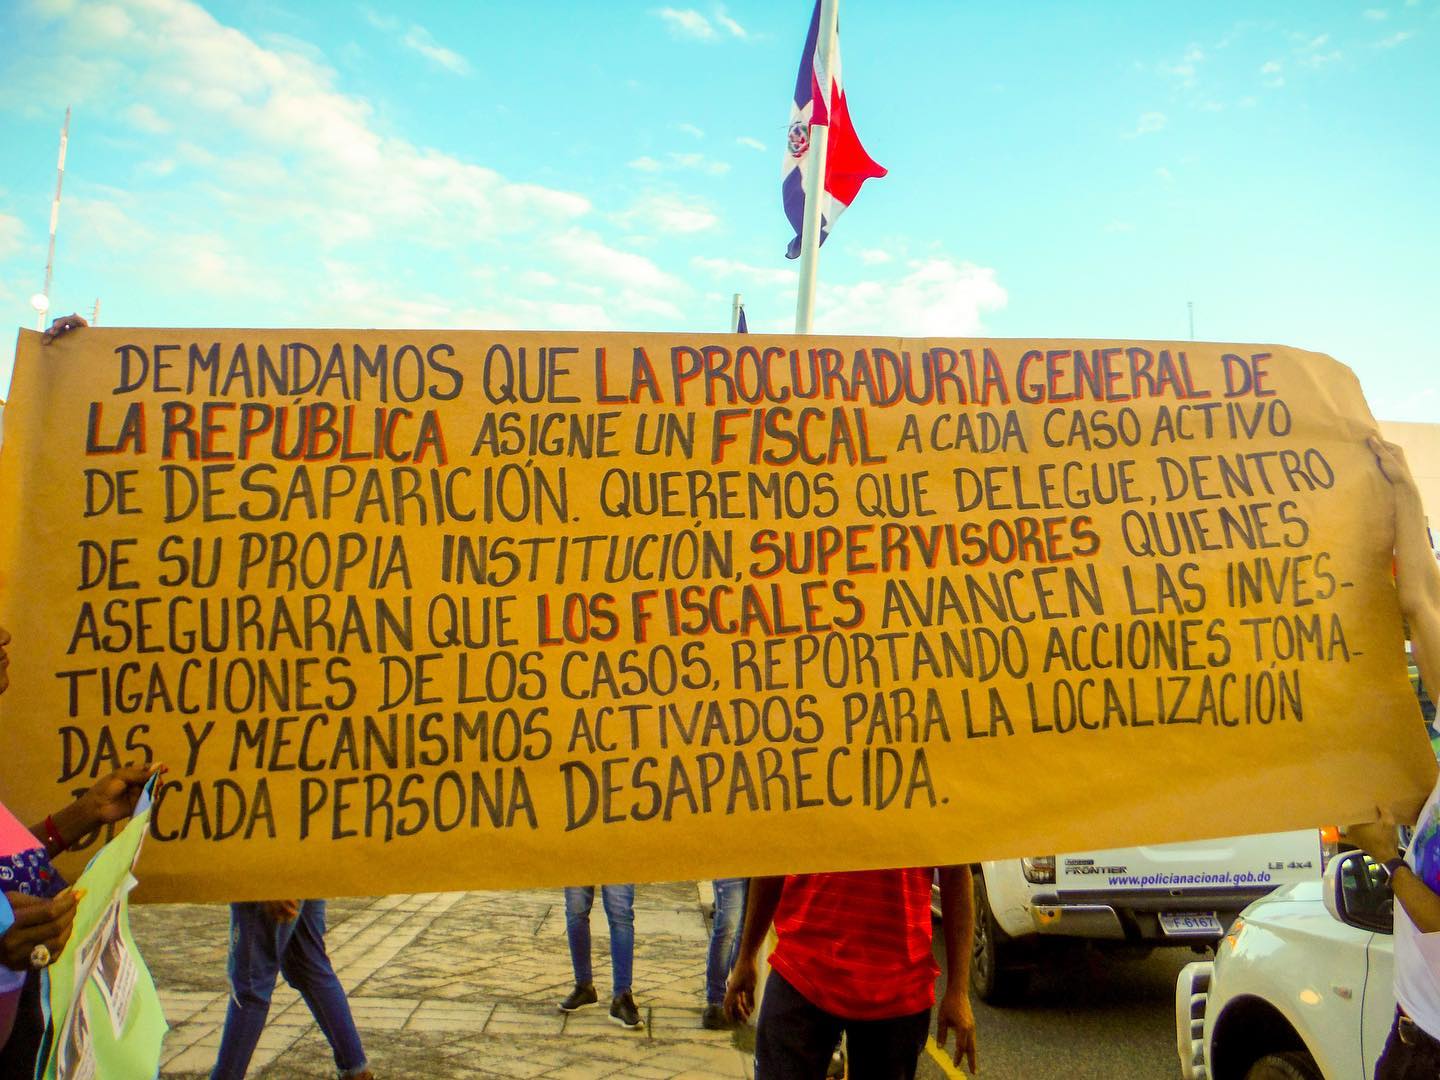 DEMANDAMOS QUE LA PROCURADURIA GENERAL DE
LA REPÚBLICA ASIGNE UN FISCAL A CADA CASO ACTIVO
DE DESAPARICIÓN. QUEREMOS QUE DELEGUE, DENTRO
DE SU PROPIA INSTITUCIÓN, SUPERVISORES QUIENES
ASEGURARAN QUE LOS FISCALES AVANCEN LAS INVES-
TIGACIONES DE LOS CASOS, REPORTANDO ACCIONES TOMA-
DAS Y MECANISMOS ACTIVADOS PARA LA LOCALIZACIÓN
DE CADA PERSONA DESAPARECIDA.
FRONTIER
LE 4x4
www.policianacional.gob.do
F-6167